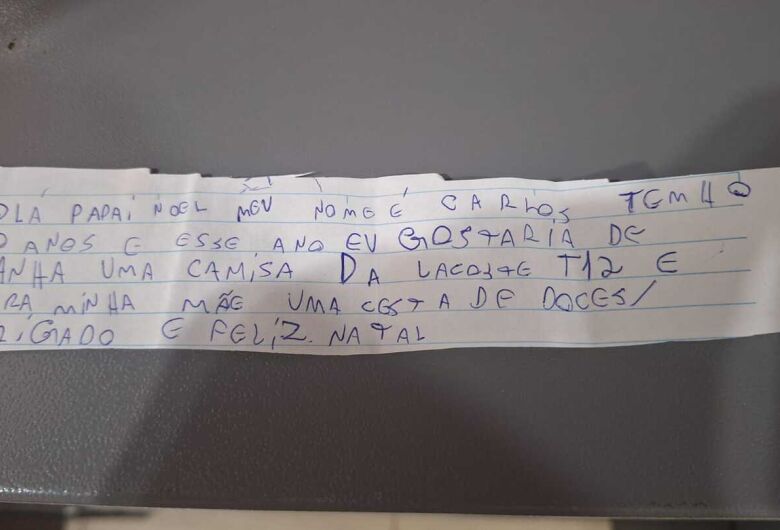 OLÁ PAPAI NOEL MEU NOME É CARLOS TEMHO
O ANOS E ESSE ANO EU GOSTARIA DE
ANHA UMA CAMISA DA LACOSTE T12 E
RA MINHA MÃE UMA CESTA DE DOCES/
IGADO E FELIZ. NATAL